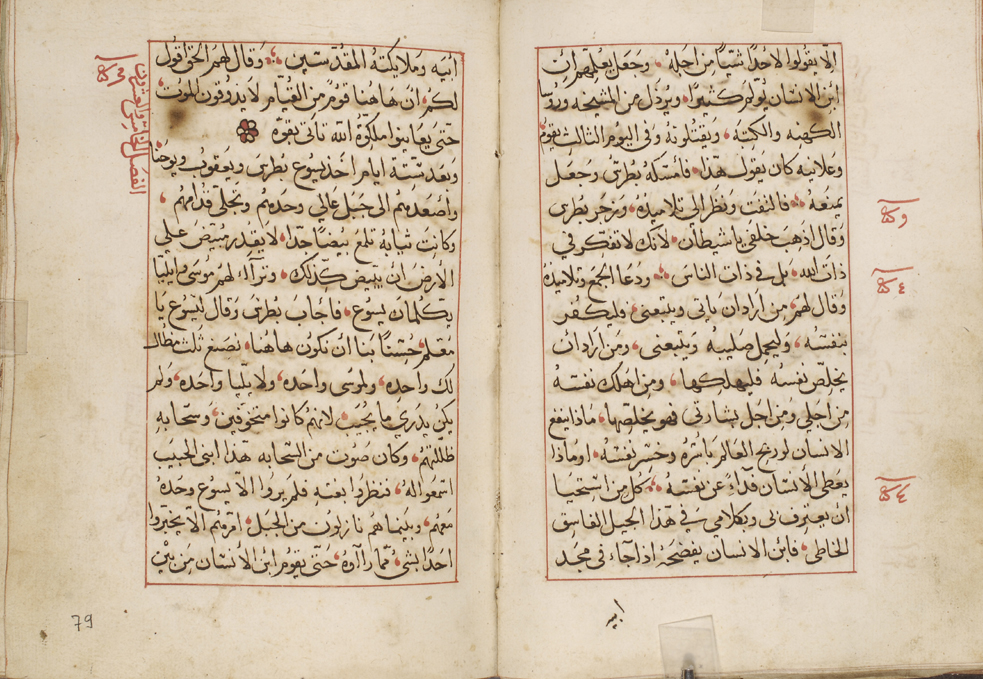 الّا يقولوا لاحدًا شيًّا من اجله وجعل يعلمهم ان
ابن الانسان يولم كثيرًا ويرذل من المشيخه وروسا
الكهنه والكتبه ويقتلونه وفي اليوم الثالث يقوم
وعلانيه كان يقول هذا فامسكه بطرس وجعل
يمنعه فالتفت ونظر الى تلاميذه وزجر بطرس
وقال اذهب خلفي يا شيطان لانك لا تفكر في
ذات الله بل في ذات الناس ودعا الجمع وتلاميذه
وقال لهم من اراد ان ياتي ويتبعني فليكفر
بنفسه وليحمل صليبه ويتبعني ومن اراد ان
يخلّص نفسه فليهلكها ومن اهلك نفسه
من اجلي ومن اجل بشارتي فهو يخلصها ماذا ينفع
الانسان لو ربح العالم باسره وخسر نفسه او ماذا
يعطي الانسان فداءً عن نفسه كل من استحيا
ان يعترف بي وبكلامي في هذا الجيل الفاسق
الخاطي فابن الانسان يفضحه اذا جاء في مجد
ابيه
ابيه وملايكته المقدسين وقال لهم الحق اقول
لكم ان هاهنا قوم من القيام لا يدوقون الموت
حتى يعاينوا ملكوة الله تاتي بقوه
الفصل الخامس والعشرون
وبعد ستة ايام اخذ يسوع بطرس ويعقوب ويوحنا
واصعدهم الى جبل عالي وحدهم وتجلى قدامهم
وكانت ثيابه تلمع بيضا جدًا لا يقدر مبيض على
الارض ان يبيض كذلك وتراآ لهم موسى وايليا
يكلمان يسوع فاجاب بطرس وقال ليسوع يا
معلم حسنًا بنا ان نكون هاهنا نصنع ثلث مظال
لك واحده ولموسى واحده ولايليا واحده ولم
يكن يدري ما يجيب لانهم كانوا متخوفين وسحابه
ظللتهم وكان صوت من السحابه هذا ابني الحبيب
اسمعوا له فنظروا بغته فلم يروا الا يسوع وحده
معهم وبينما هم نازلون من الجبل امرهم الا يخبروا
احدًا بشي مما راآوه حتى يقوم ابن الانسان من بين
79